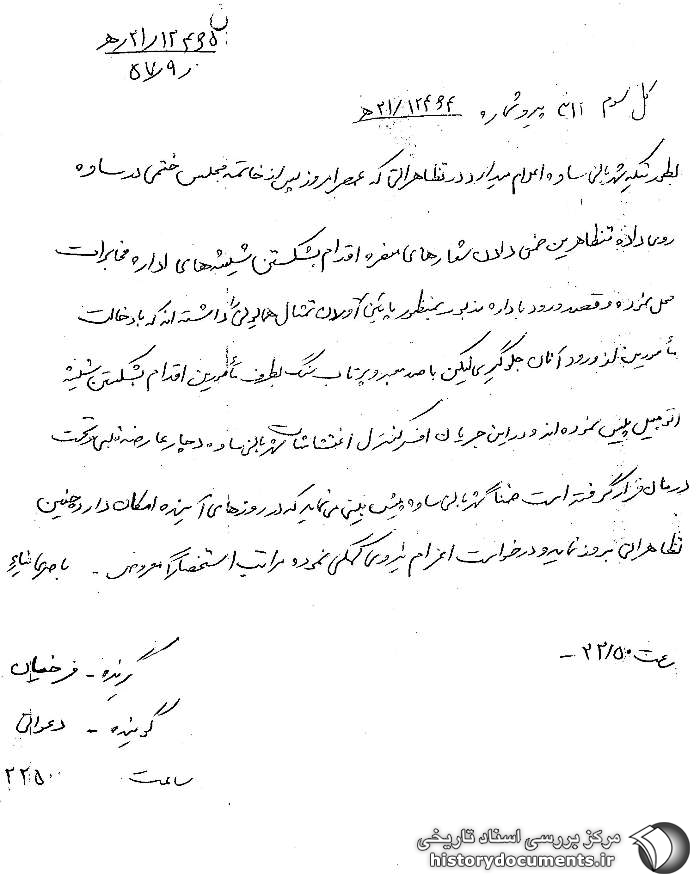 ۲۱/۱۲۴۶۵/ﻫ
۵۷/۹/
کل سوم ۳۱۱ پیرو شماره ۲۱/۱۲۴۶۴ﻫ
بطوریکه شهربانی ساوه اعلام میدارد در تظاهراتی که عصر امروز پس از خاتمه مجلس ختمی در ساوه
روی داده متظاهرین ضمن دادن شعارهای مضره اقدام بشکستن شیشه های اداره مخابرات
محل نموده و قصد ورود باداره مزبور بمنظور پائین آوردن تمثال همایونی را داشته اند که با دخالت
مأمورین از ورود آنان جلوگیری لیکن پرتاب سنگ بطرف مأمورین اقدام بشکستن شیشه
اتومبیل پلیس نموده اند و در این جریان افسر کنترل اغتشاشات شهربانی ساوه دچار عارضه قلبی و تحت
درمان قرار گرفته است ضمناً شهربانی ساوه پیش بینی می نماید که در روزهای آینده امکان دارد چنین
تظاهراتی بروز نماید و درخواست اعزام نیروی کمکی نموده مراتب استحضاراً معروض -
ساعت ۲۲/۵۰ -
گیرنده -
گوینده -
ساعت ۲۲۵۰
مرکز بررسی اسناد تاریخی
historydocuments.ir